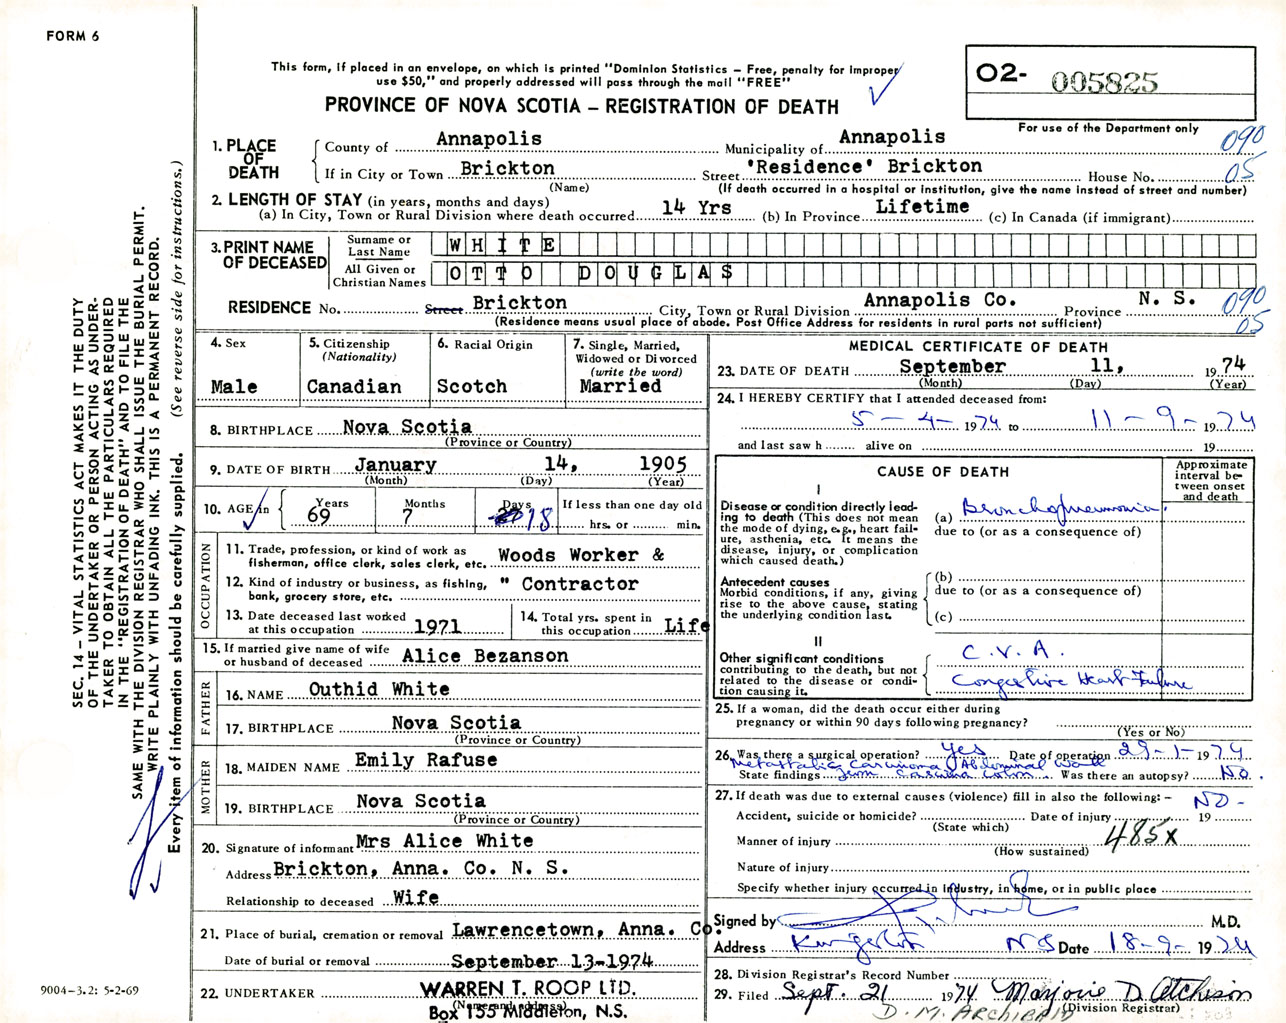 FORM 6
This form, if placed in an envelope, on which is printed "Dominion Statistics – Free, penalty for improper
use $50," and properly addressed will pass through the mail "FREE"
PROVINCE OF NOVA SCOTIA – REGISTRATION OF DEATH
O2- 005825
For use of the Department only
SEC. 14 – VITAL STATISTICS ACT MAKES IT THE DUTY
OF THE UNDERTAKER OR PERSON ACTING AS UNDER-
TAKER TO OBTAIN ALL THE PARTICULARS REQUIRED
IN THE "REGISTRATION OF DEATH" AND TO FILE THE
SAME WITH THE DIVISION REGISTRAR WHO SHALL ISSUE THE BURIAL PERMIT.
WRITE PLAINLY WITH UNFADING INK. THIS IS A PERMANENT RECORD.
Every item of information should be carefully supplied. (See reverse side for instructions.)
1. PLACE OF DEATH
County of Annapolis Municipality of Annapolis 090
If in City or Town Brickton Street 'Residence' Brickton House No. 05
(Name) (If death occurred in a hospital or institution, give the name instead of street and number)
2. LENGTH OF STAY (in years, months and days)
(a) In City, Town or Rural Division where death occurred 14 Yrs (b) In Province Lifetime (c) In Canada (if immigrant)
3. PRINT NAME OF DECEASED
Surname or Last Name WHITE
All Given or Christian Names OTTO DOUGLAS
RESIDENCE No. Street Brickton City, Town or Rural Division Annapolis Co. Province N. S. 090
(Residence means usual place of abode. Post Office Address for residents in rural parts not sufficient) 05
4. Sex
Male
5. Citizenship
(Nationality)
Canadian
6. Racial Origin
Scotch
7. Single, Married,
Widowed or Divorced
(write the word)
Married
8. BIRTHPLACE Nova Scotia
(Province or Country)
9. DATE OF BIRTH January 14, 1905
(Month) (Day) (Year)
10. AGE in Years 69 Months 7 Days 18 If less than one day old
hrs. or min.
OCCUPATION
11. Trade, profession, or kind of work as
fisherman, office clerk, sales clerk, etc. Woods Worker &
12. Kind of industry or business, as fishing,
bank, grocery store, etc. " Contractor
13. Date deceased last worked
at this occupation 1971
14. Total yrs. spent in
this occupation Life
15. If married give name of wife
or husband of deceased Alice Bezanson
FATHER
16. NAME Outhid White
17. BIRTHPLACE Nova Scotia
(Province or Country)
MOTHER
18. MAIDEN NAME Emily Rafuse
19. BIRTHPLACE Nova Scotia
(Province or Country)
20. Signature of informant Mrs Alice White
Address Brickton, Anna. Co. N. S.
Relationship to deceased Wife
21. Place of burial, cremation or removal Lawrencetown, Anna. Co.
Date of burial or removal September 13-1974
22. UNDERTAKER WARREN T. ROOP LTD.
(Name and address)
Box 155 Middleton, N.S.
9004–3.2: 5-2-69
MEDICAL CERTIFICATE OF DEATH
23. DATE OF DEATH September 11, 1974
(Month) (Day) (Year)
24. I HEREBY CERTIFY that I attended deceased from:
5-4-1974 to 11-9-1974
and last saw h alive on 19
CAUSE OF DEATH
Approximate
interval be-
tween onset
and death
I
Disease or condition directly lead-
ing to death (This does not mean
the mode of dying, e.g., heart fail-
ure, asthenia, etc. It means the
disease, injury, or complication
which caused death.)
(a) Bronchopneumonia.
due to (or as a consequence of)
Antecedent causes
Morbid conditions, if any, giving
rise to the above cause, stating
the underlying condition last.
(b)
due to (or as a consequence of)
(c)
II
Other significant conditions
contributing to the death, but not
related to the disease or condi-
tion causing it.
C.V.A.
Congestive Heart Failure
25. If a woman, did the death occur either during
pregnancy or within 90 days following pregnancy?
(Yes or No)
26. Was there a surgical operation? Yes Date of operation 29-1-1974
Metastatic Carcinoma Abdominal Wall
State findings from Carcinoma Colon Was there an autopsy? No.
27. If death was due to external causes (violence) fill in also the following: – NO -
Accident, suicide or homicide? Date of injury 19
(State which)
Manner of injury 485X
(How sustained)
Nature of injury
Specify whether injury occurred in industry, in home, or in public place
Signed by M.D.
Address Kingston NS Date 18-9-1974
28. Division Registrar's Record Number
29. Filed Sept. 21 1974 Marjorie D. Atchison
(Division Registrar)
D. M. ARCHIBALD